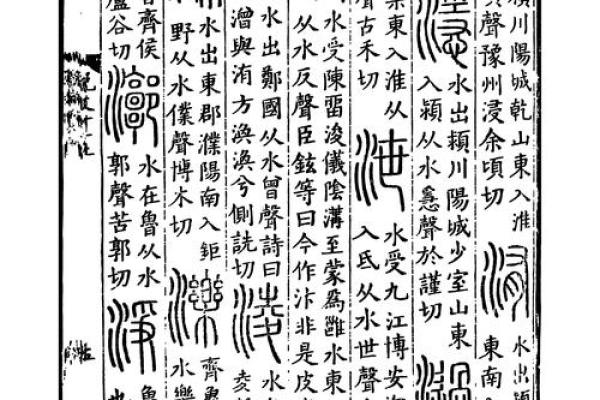 潁川陽城乾山東入淮
聲豫州浸余頃切
洧
水出潁
東南入
濦
水出潁川陽城少室山東
入潁从水㥯聲於謹切
濄
渠東入淮从
聲古禾切
泄
水受九江博安
入氐从水世聲
水受陳畱浚儀陰溝至蒙爲雝水東
从水反聲臣鉉等曰今作汴非是皮
水出鄭國从水曾聲詩曰
潧與洧方渙渙兮側詵切
淩
水
夌
水出東郡濮陽南入鉅
野从水僕聲博木切
濼
齊魯
水樂
齊侯
盧谷切
漷
水在魯从水
郭聲苦郭切
淨
魯
也